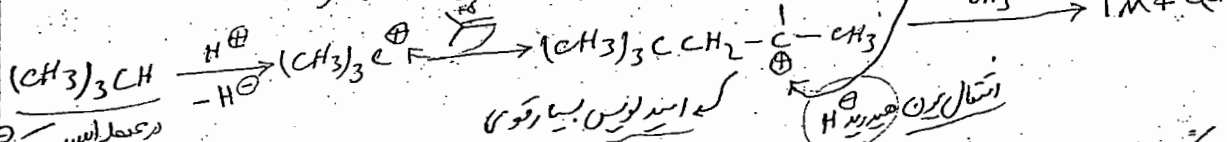 (CH3)3CH H⊕ -H⊖ (CH3)3C⊕ (CH3)3CCH2-C⊕-CH3
که اسید لویس بسیار قوی انتقال یون هیدرید H⊖